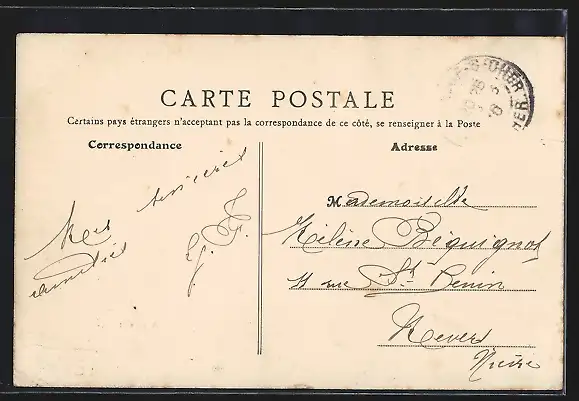 CARTE POSTALE
Certains pays étrangers n'acceptant pas la correspondance de ce côté, se renseigner à la Poste
Correspondance
Adresse
Mes sincères
amitiés
G. F.
Mademoiselle
Hélène Béquignot
11 rue St Benin
Nevers
Nièvre
CHER
CHER